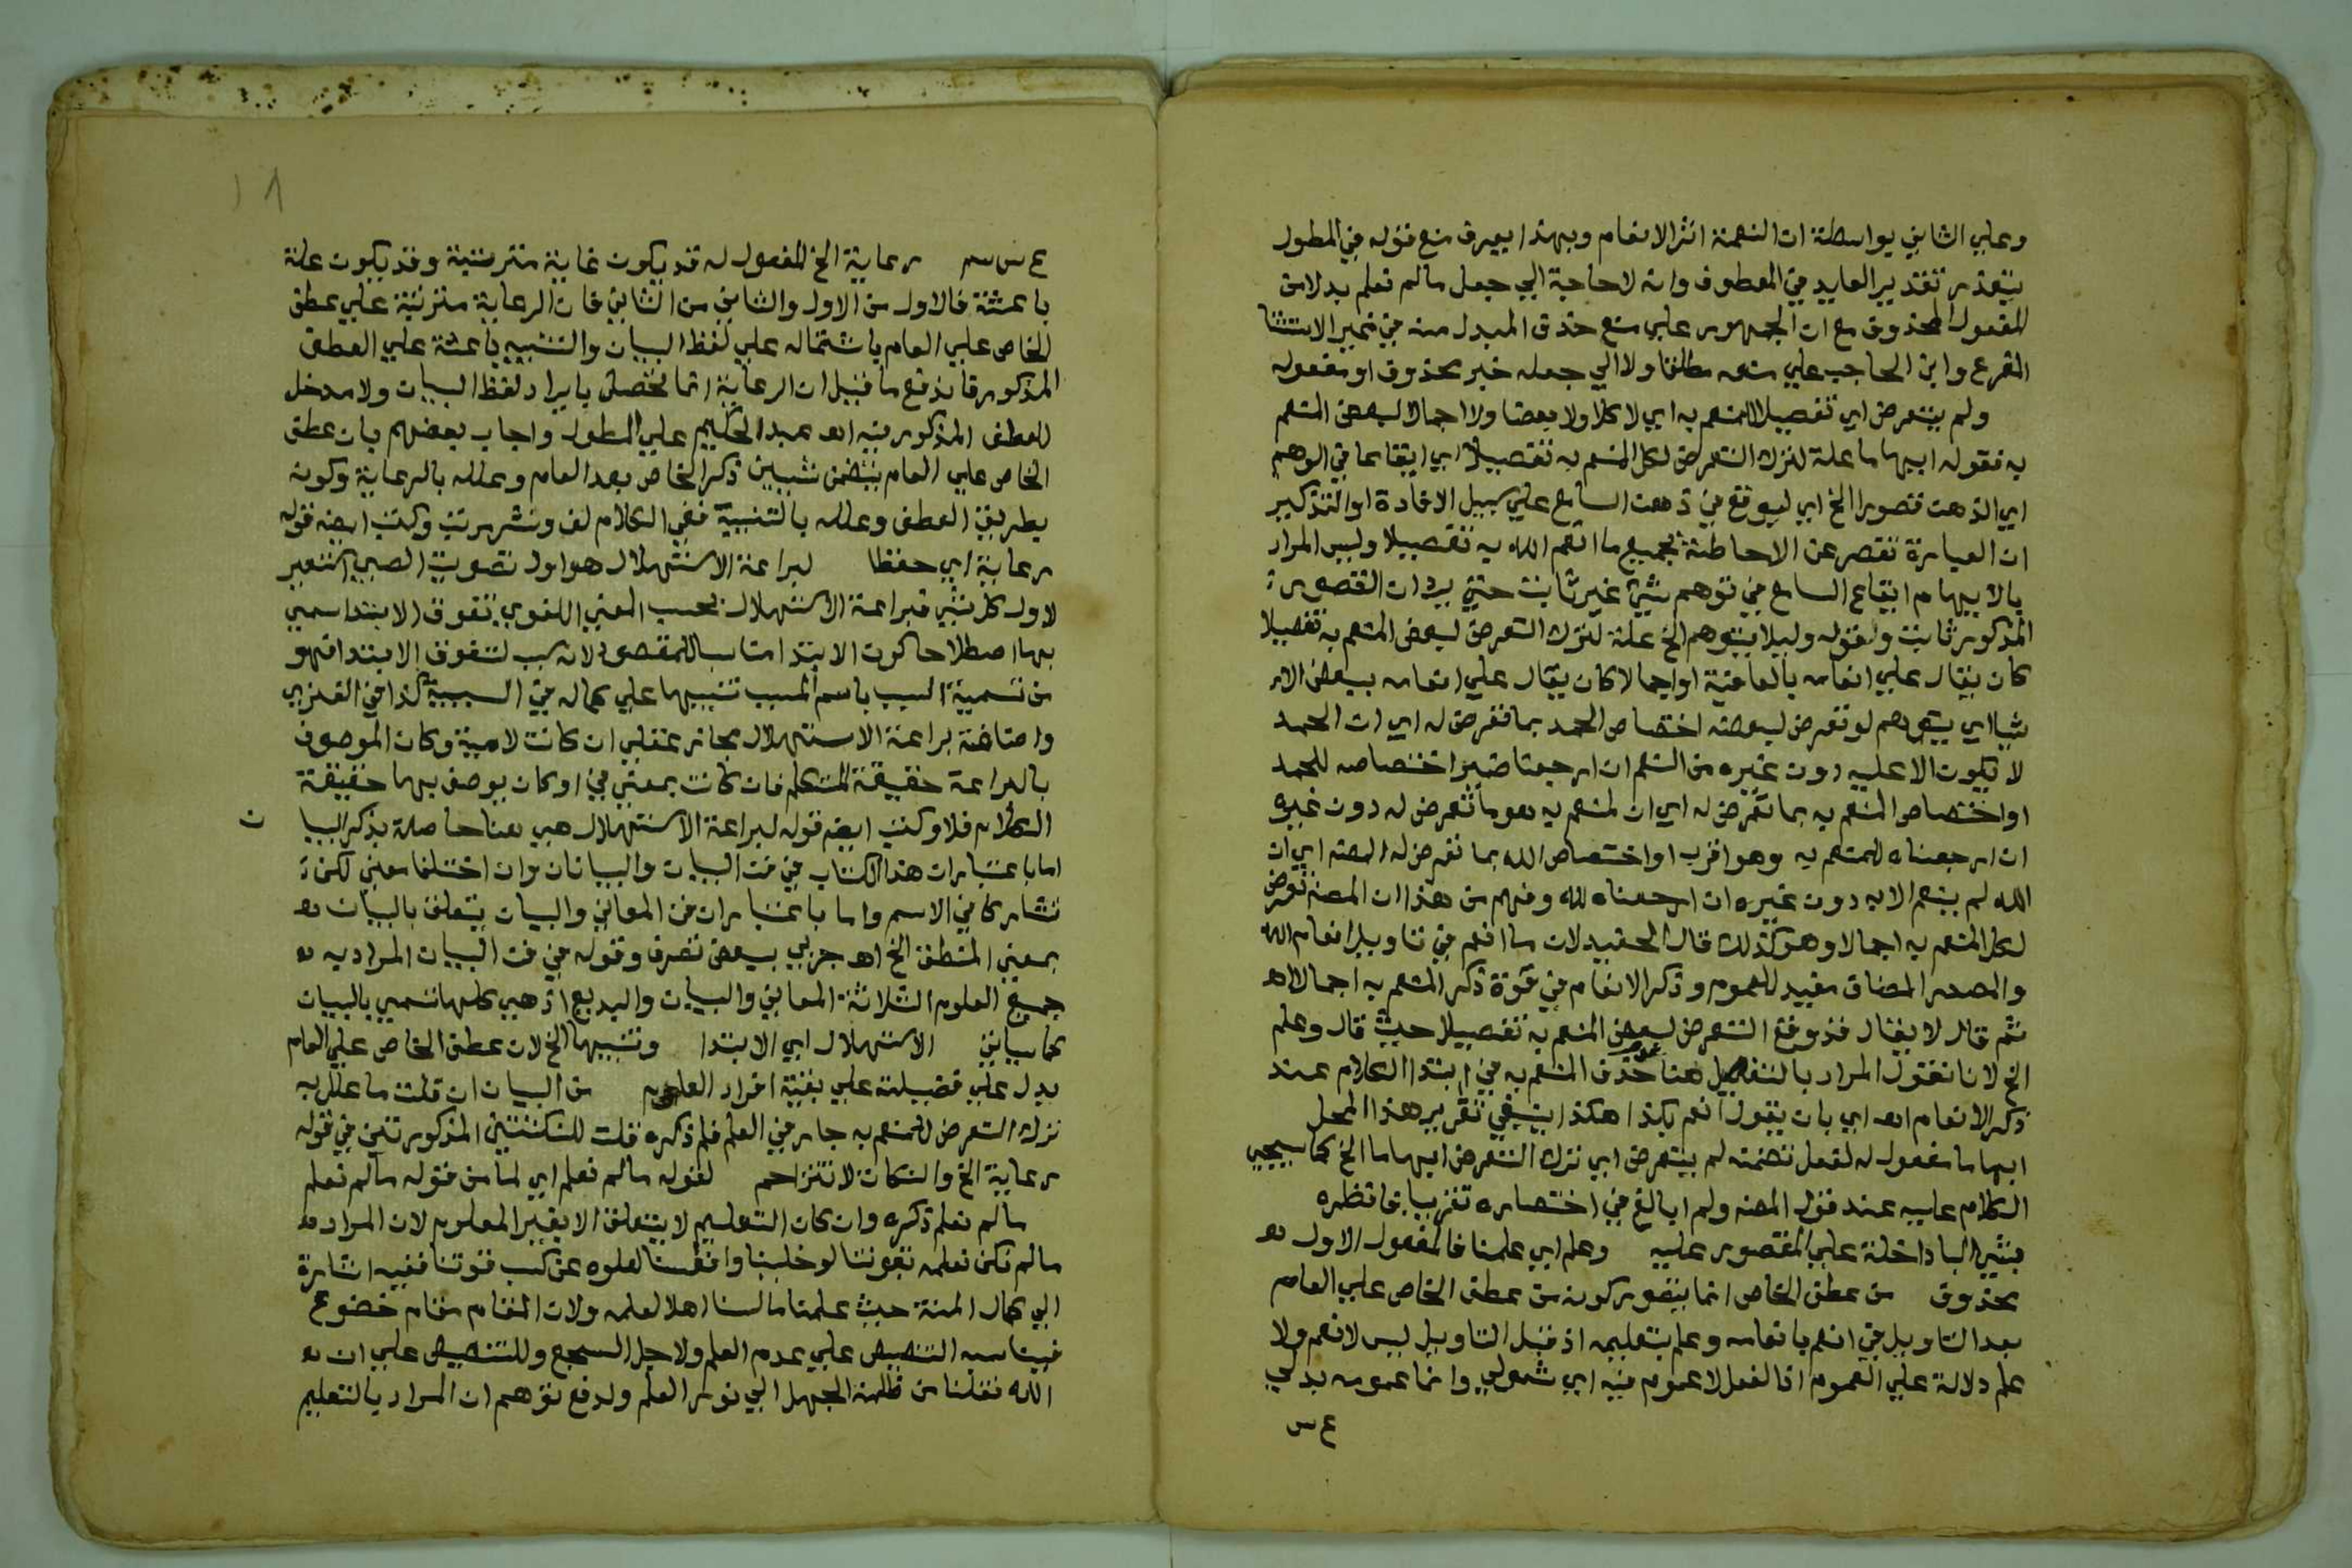 وعلي الثاني بواسطة ان النعمة اثر الانعام وبهذا يعرف منع قوله في المطول
بتعذر تقدير العايد في المعطوف وانه لا حاجة الي جعل ما لم نعلم بدلا من
المفعول المحذوف مع ان الجمهور علي منع حذف المبدل منه في غير الاستثنا
المفرغ وابن الحاجب علي منعه مطلقا ولا الي جعله خبر محذوف او مفعوله
ولم يتعرض اي تفصيلا للمنعم به اي لا كلا ولا بعضا ولا اجمالا لبعض المنعم
به فقوله ايهاما علة لترك التعرض لكل المنعم به تفصيلا اي ايقاعا في الوهم
اي الذهن قصور الخ اي ليوقع في ذهن السامع علي سبيل الافادة او التذكير
ان العبارة تقصر عن الاحاطة بجميع ما انعم الله به تفصيلا وليس المراد
بالايهام ايقاع السامع في توهم شي غير ثابت حتي يرد ان القصور
المذكور ثابت وقوله وليلا يتوهم الخ علة لترك التعرض لبعض المنعم به تفصيلا
كان يقال علي انعامه بالعافية او اجمالا كان يقال علي انعامه ببعض الا
شيا اي يتوهم لو تعرض لبعضه اختصاص الحمد بما تعرض له اي ان الحمد
لا يكون الا عليه دون غيره من النعم ان ارجعنا ضمير اختصاصه للحمد
او اختصاص المنعم به بما تعرض له اي ان المنعم به هو ما تعرض له دون غيره
ان ارجعناه للمنعم به وهو اقرب او اختصاص الله بما تعرض له المصنه اي ان
الله لم ينعم الا به دون غيره ان ارجعناه لله وفهم من هذا ان المصنه تعرض
لكل المنعم به اجمالا وهو كذلك قال الحفيد لان ما انعم في تاويل انعام الله
والمصدر المضاف مفيد للعموم وذكر الانعام في قوة ذكر المنعم به اجمالا اهـ
ثم قال لا يقال قد وقع التعرض لبعض المنعم به تفصيلا حيث قال وعلم
الخ لانا نقول المراد بالتفصيل هنا عدم حذف المنعم به في ابتدا الكلام عند
ذكر الانعام اهـ اي بان يقول انعم بكذا هكذا ينبغي تقرير هذا المحل
ايهاما مفعول له لفعل تضمنه لم يتعرض اي ترك التعرض ايهاما الخ كما سيجي
الكلام عليه عند قول المصنه ولم ابالغ في اختصاره تقريبا فانظره
بشي البا داخلة علي المقصور عليه وعلم اي علمنا فالمفعول الاول
محذوف من عطف الخاص انما يتصور كونه من عطف الخاص علي العام
بعد التاويل في انعم بانعامه وعلم بتعليمه اذ قبل التاويل ليس لانعم ولا
علم دلالة علي العموم اذ الفعل لا عموم فيه اي شمولي وانما عمومه بدلي
ع س
١٨
ع س رعاية الخ المفعول له قد يكون غاية مترتبة وقد يكون علة
باعثة فالاول من الاول والثاني من الثاني فان الرعاية مترتبة علي عطف
الخاص علي العام باشتماله علي لفظ البيان والتنبيه باعثة علي العطف
المذكور فاندفع ما قيل ان الرعاية انما تحصل بايراد لفظ البيان ولا مدخل
للعطف المذكور فيه اهـ عبد الحكيم علي المطول واجاب بعضهم بان عطف
الخاص علي العام يتضمن شيين ذكر الخاص بعد العام وعلله بالرعاية وكونه
بطريق العطف وعلله بالتنبيه ففي الكلام لف ونشر مرتب وكتب ايضه قوله
رعاية اي حفظا لبراعة الاستهلال هو اول تصويت الصبي استعير
لاول كل شي فبراعة الاستهلال بحسب المعني اللغوي تفوق الابتدا سمي
بها اصطلاحا كون الابتدا مناسبا للمقصود لانه سبب لتفوق الابتدا فهو
من تسمية السبب باسم المسبب تنبيها علي كماله في السببية كذا في الفنري
واضافة براعة الاستهلال مجاز عقلي ان كانت لامية وكان الموصوف
بالبراعة حقيقة المتكلم فان كانت بمعني في او كان يوصف بها حقيقة
الكلام فلا وكتب ايضه قوله لبراعة الاستهلال هي هنا حاصلة بذكر البيا ن
اما باعتبار ان هذا الكتاب في فن البيان والبيانان وان اختلفا معني لكن
تشاركا في الاسم واما باعتبار ان فن المعاني والبيان يتعلق بالبيان
بمعني المنطق الخ اهـ جربي ببعض تصرف وقوله في فن البيان المراد به
جميع العلوم الثلاثة المعاني والبيان والبديع اذ هي كلها تسمي بالبيان
كما سياتي الاستهلال اي الابتدا وتنبيها الخ لان عطف الخاص علي العام
يدل علي فضيلته علي بقية افراد العام من البيان ان قلت ما علل به
ترك التعرض للمنعم به جار في العلم فلم ذكره قلت للنكتتين المذكورتين في قوله
رعاية الخ والنكات لا تتزاحم لقوله ما لم نعلم اي لما من قوله ما لم نعلم
ما لم نعلم ذكره وان كان التعليم لا يتعلق الا بغير المعلوم لان المراد
ما لم نكن نعلمه بقوتنا لو خلينا وانفسنا لعلوه عن كسب قوتنا ففيه اشارة
الي كمال المنة حيث علمنا ما لسنا اهلا لعلمه ولان المقام مقام خضوع
فيناسبه التنصيص علي عدم العلم ولاجل السجع وللتنصيص علي ان
الله نقلنا من ظلمة الجهل الي نور العلم ولدفع توهم ان المراد بالتعليم